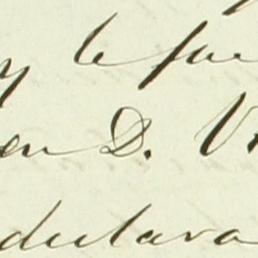 y le fue
en D. V
declara